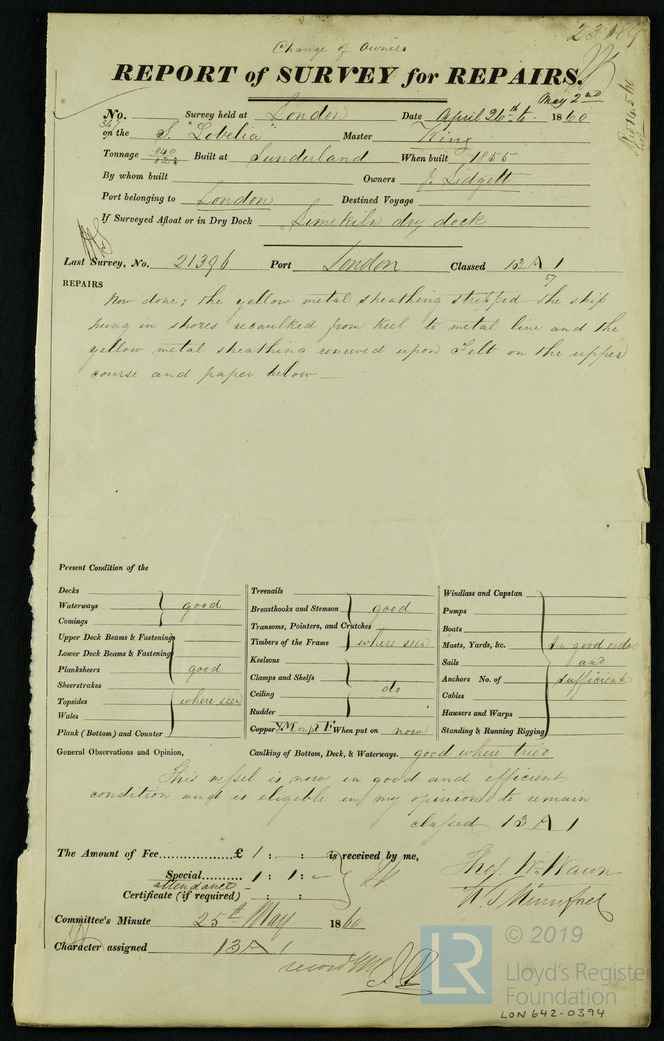 Change of Owners
REPORT of SURVEY for REPAIRS.
No. Survey held at London Date April 26th to May 2nd 1860
on the S. "Lobelia" Master King
Tonnage Built at Sunderland When built 1855
By whom built Owners J. Lidgett
Port belonging to London Destined Voyage
If Surveyed Afloat or in Dry Dock Limekiln dry dock
Last Survey, No. 21396 Port London Classed 13 A 1
57
REPAIRS
Now done; the yellow metal sheathing stripped the ship
hung in shores recaulked from keel to metal line and the
yellow metal sheathing renewed upon Felt on the upper
course and paper below
Present Condition of the
Decks
Waterways good
Comings
Upper Deck Beams & Fastenings
Lower Deck Beams & Fastenings
Planksheers good
Sheerstrakes
Topsides where seen
Wales
Plank (Bottom) and Counter
Treenails
Breasthooks and Stemson good
Transoms, Pointers, and Crutches
Timbers of the Frame where seen
Keelsons
Clamps and Shelfs
Ceiling do
Rudder
Copper Y.M. on pt F. When put on now
Windlass and Capstan
Pumps
Boats
Masts, Yards, &c. In good order
Sails and
Anchors No. of sufficient
Cables
Hawsers and Warps
Standing & Running Rigging
General Observations and Opinion, Caulking of Bottom, Deck, & Waterways. good where tried
This vessel is now in good and efficient
condition and is eligible in my opinion to remain
classed 13 A 1
The Amount of Fee £ 1 : - : is received by me,
Special 1 : 1 : -
attendance
Certificate (if required) - : :
Thos. W. Wawn
Committee's Minute 25th May 1860
Character assigned 13 A 1
© 2019
LR
Lloyd's Register
Foundation
LON 642-0394